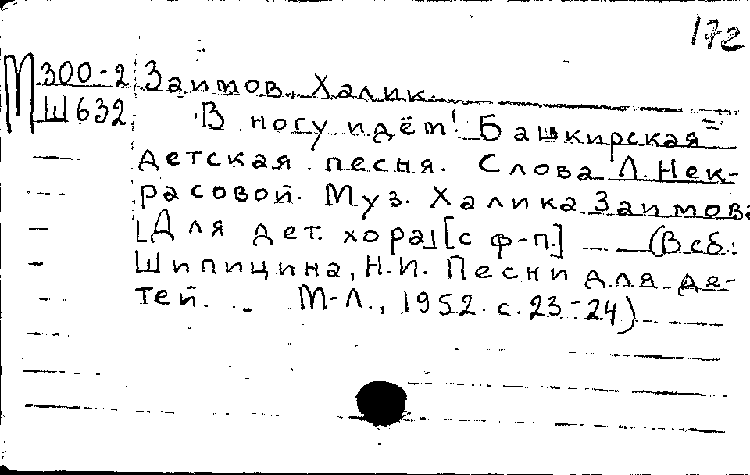 172
М300-2 Заимов, Халик.
Ш632 В ногу идём! Башкирская
детская песня. Слова Л. Нек-
расовой. Муз. Халика Заимова
[Для дет. хора] [с ф-п.] — (В сб.:
Шипицина, Н.И. Песни для де-
тей. М-Л., 1952. с. 23-24)